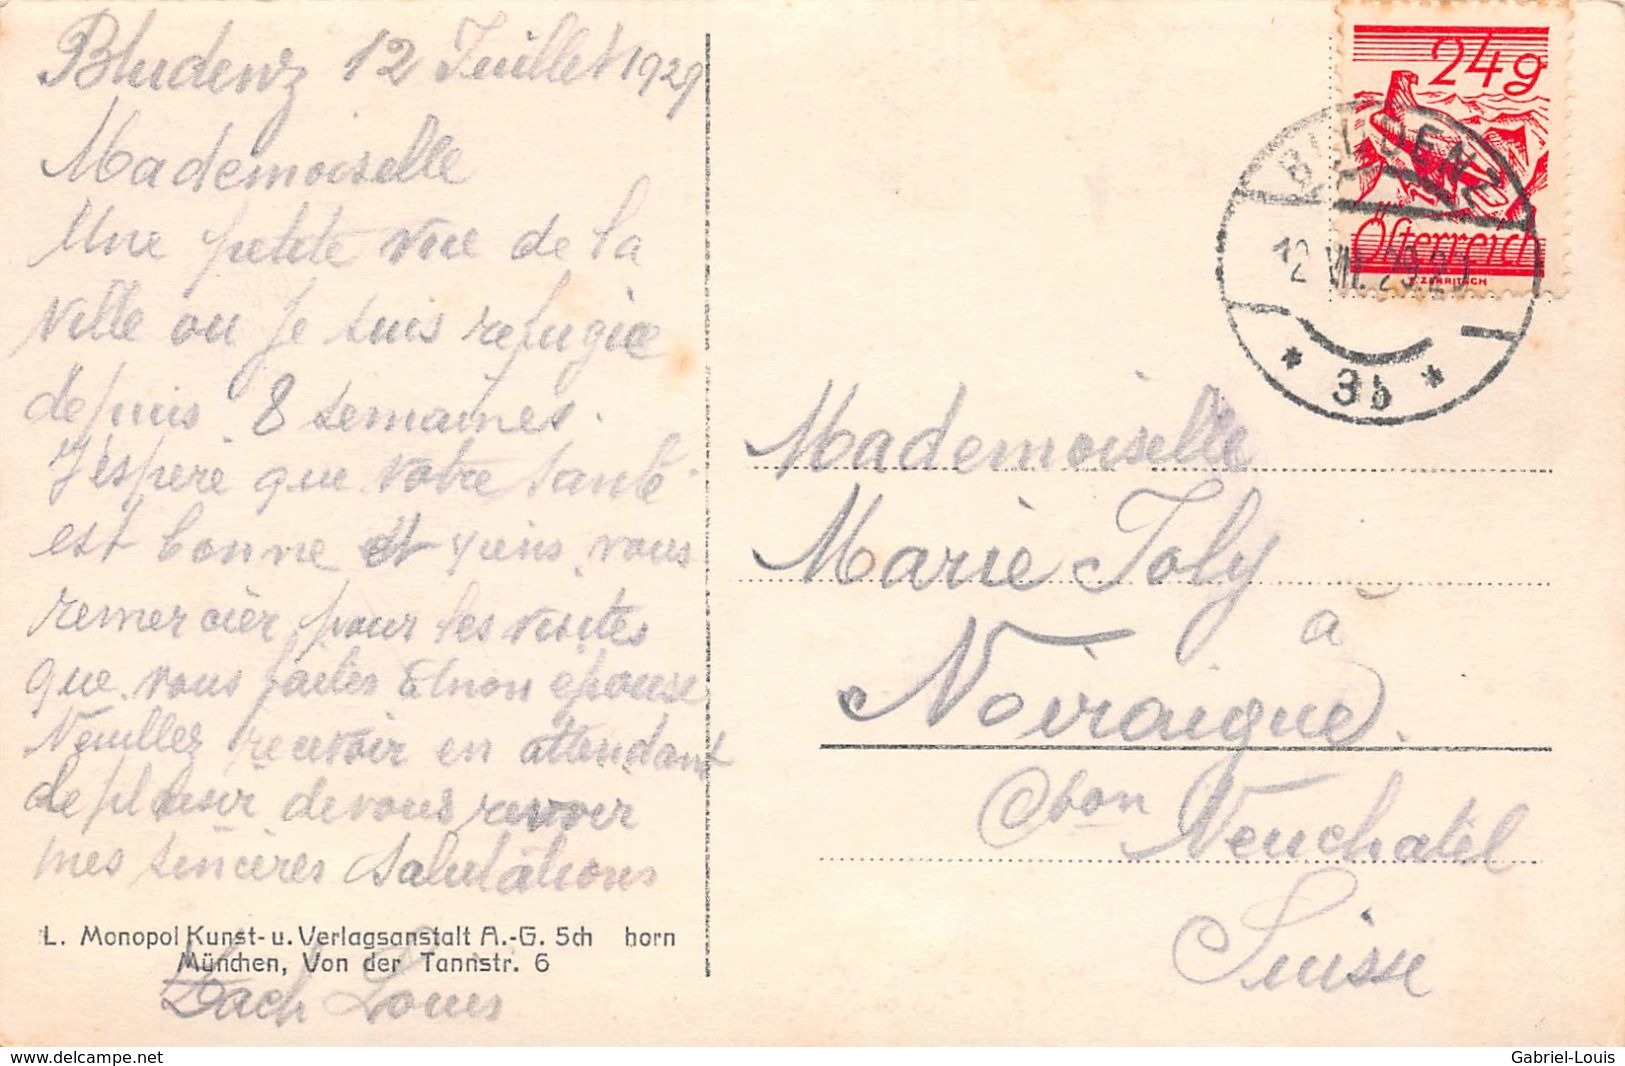 Bludenz 12 Juillet 1929
Mademoiselle
Une petite vue de la
ville ou je suis refugiee
depuis 8 semaines.
J'espere que votre santé
est bonne et viens vous
remercier pour les visites
que vous faites à mon epouse
Veuillez recevoir en attendant
le plaisir de vous revoir
mes sincères salutations
Zach Louis
L. Monopol Kunst- u. Verlagsanstalt A.-G. Sch born
München, Von der Tannstr. 6
24g
Österreich
BLUDENZ
12.VII.29.
* 3b *
Mademoiselle
Marie Joly
à
Noiraigue.
Cton Neuchatel
Suisse
www.delcampe.net
Gabriel-Louis